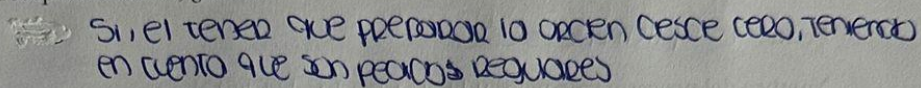 Si, el tener que preparar la orden desde cero, teniendo
en cuenta que son pedidos regulares